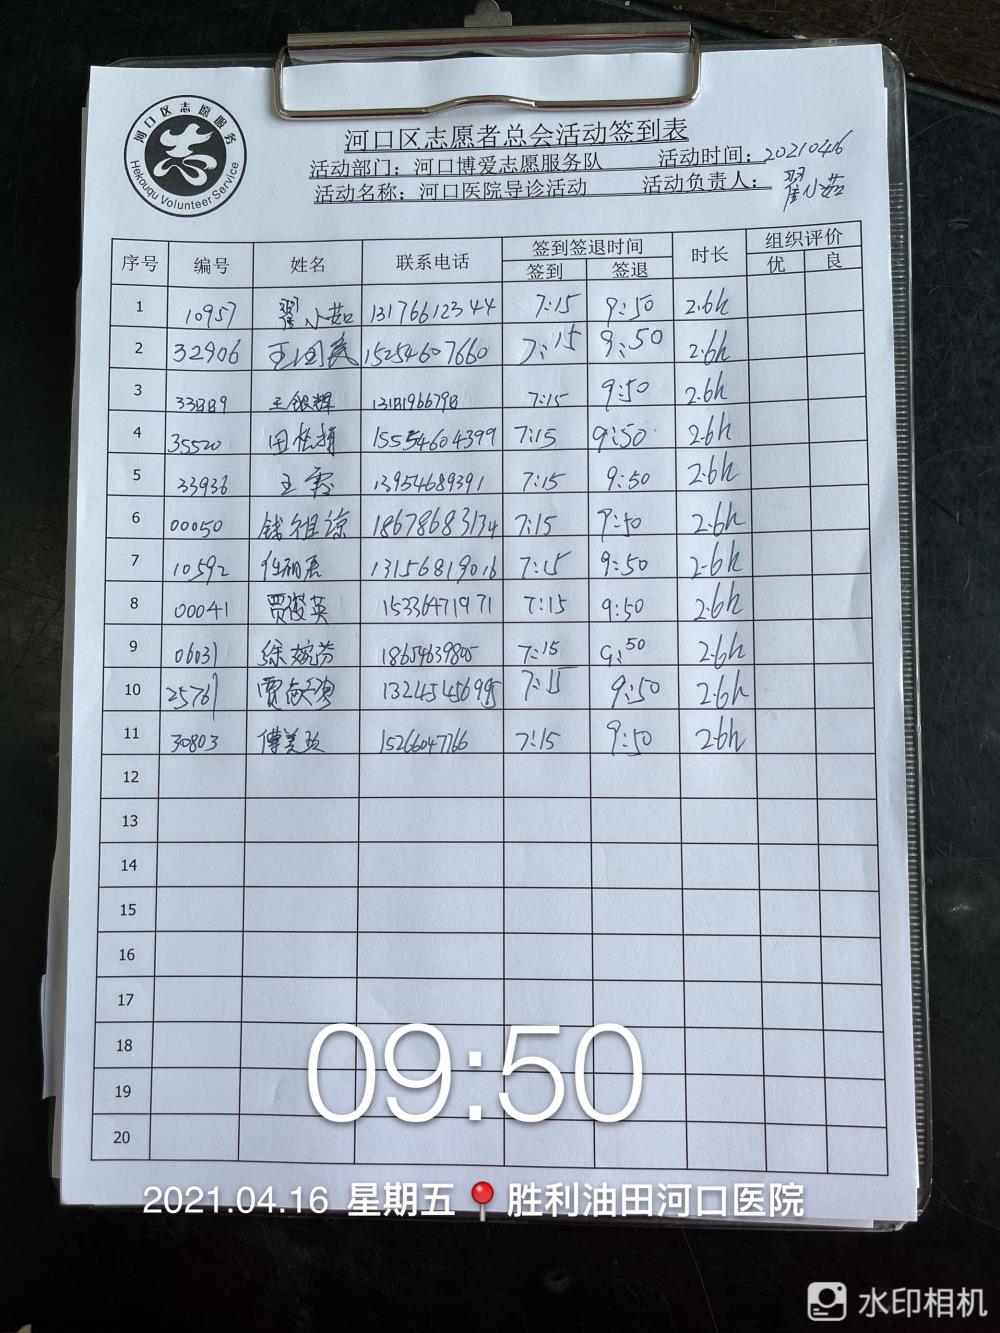 河口区志愿服务
Hekouqu Volunteer Service
河口区志愿者总会活动签到表
活动部门：河口博爱志愿服务队 活动时间：20210416
活动名称：河口医院导诊活动 活动负责人：翟小茹
序号 编号 姓名 联系电话 签到签退时间 时长 组织评价
签到 签退 优 良
1 10957 翟小茹 13176612344 7:15 9:50 2.6h
2 32906 15254607660 7:15 9:50 2.6h
3 王银辉 7:15 9:50 2.6h
4 35520 15554604399 7:15 9:50 2.6h
5 33936 王霞 13954689391 7:15 9:50 2.6h
6 00050 钱祖谅 18678683134 7:15 9:50 2.6h
7 10592 13156819016 7:15 9:50 2.6h
8 00041 贾俊英 15336471971 7:15 9:50 2.6h
9 06031 徐婉芬 18654639805 7:15 9:50 2.6h
10 25761 7:15 9:50 2.6h
11 30803 傅美玫 15266047766 7:15 9:50 2.6h
12
13
14
15
16
17
18
19
20
09:50
2021.04.16 星期五 胜利油田河口医院
水印相机